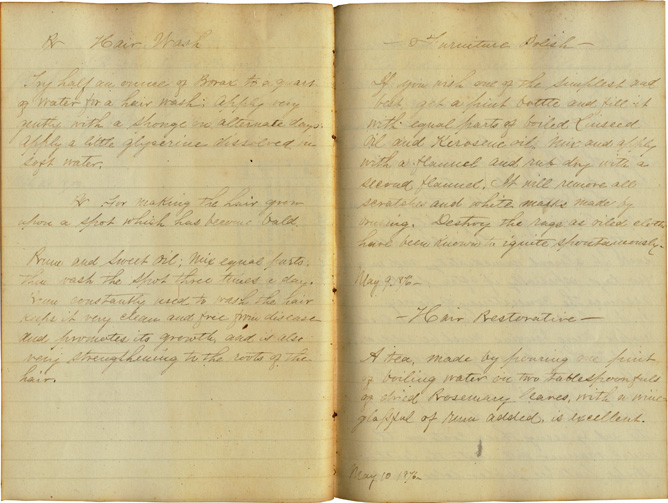 A Hair Wash
Try half an ounce of Borax to a quart
of Water for a hair wash: Apply very
gently with a sponge on alternate days.
Apply a little glyserine dissolved in
soft water.
A For making the hair grow
upon a spot which has become bald.
Rum and Sweet Oil; Mix equal parts.
this wash the spot three times a day.
Rum constantly used to wash the hair
keeps it very clean and free from disease
and promotes its growth, and is also
very strengthening to the roots of the
hair.
Furniture Polish —
If you wish one of the simplest and
best, get a pint bottle and fill it
with equal parts of boiled Linseed
Oil and Kerosene oil, Mix and apply
with a flannel and rub dry with a
second flannel. It will remove all
scratches and white marks made by
bruising. Destroy the rags as oiled cloths
have been known to ignite spontaneously.
May 9.
— Hair Restorative —
A tea, made by pouring one pint
of boiling water on two tablespoonfuls
of dried Rosemary leaves, with a wine
glassful of Rum added, is excellent.
May 10